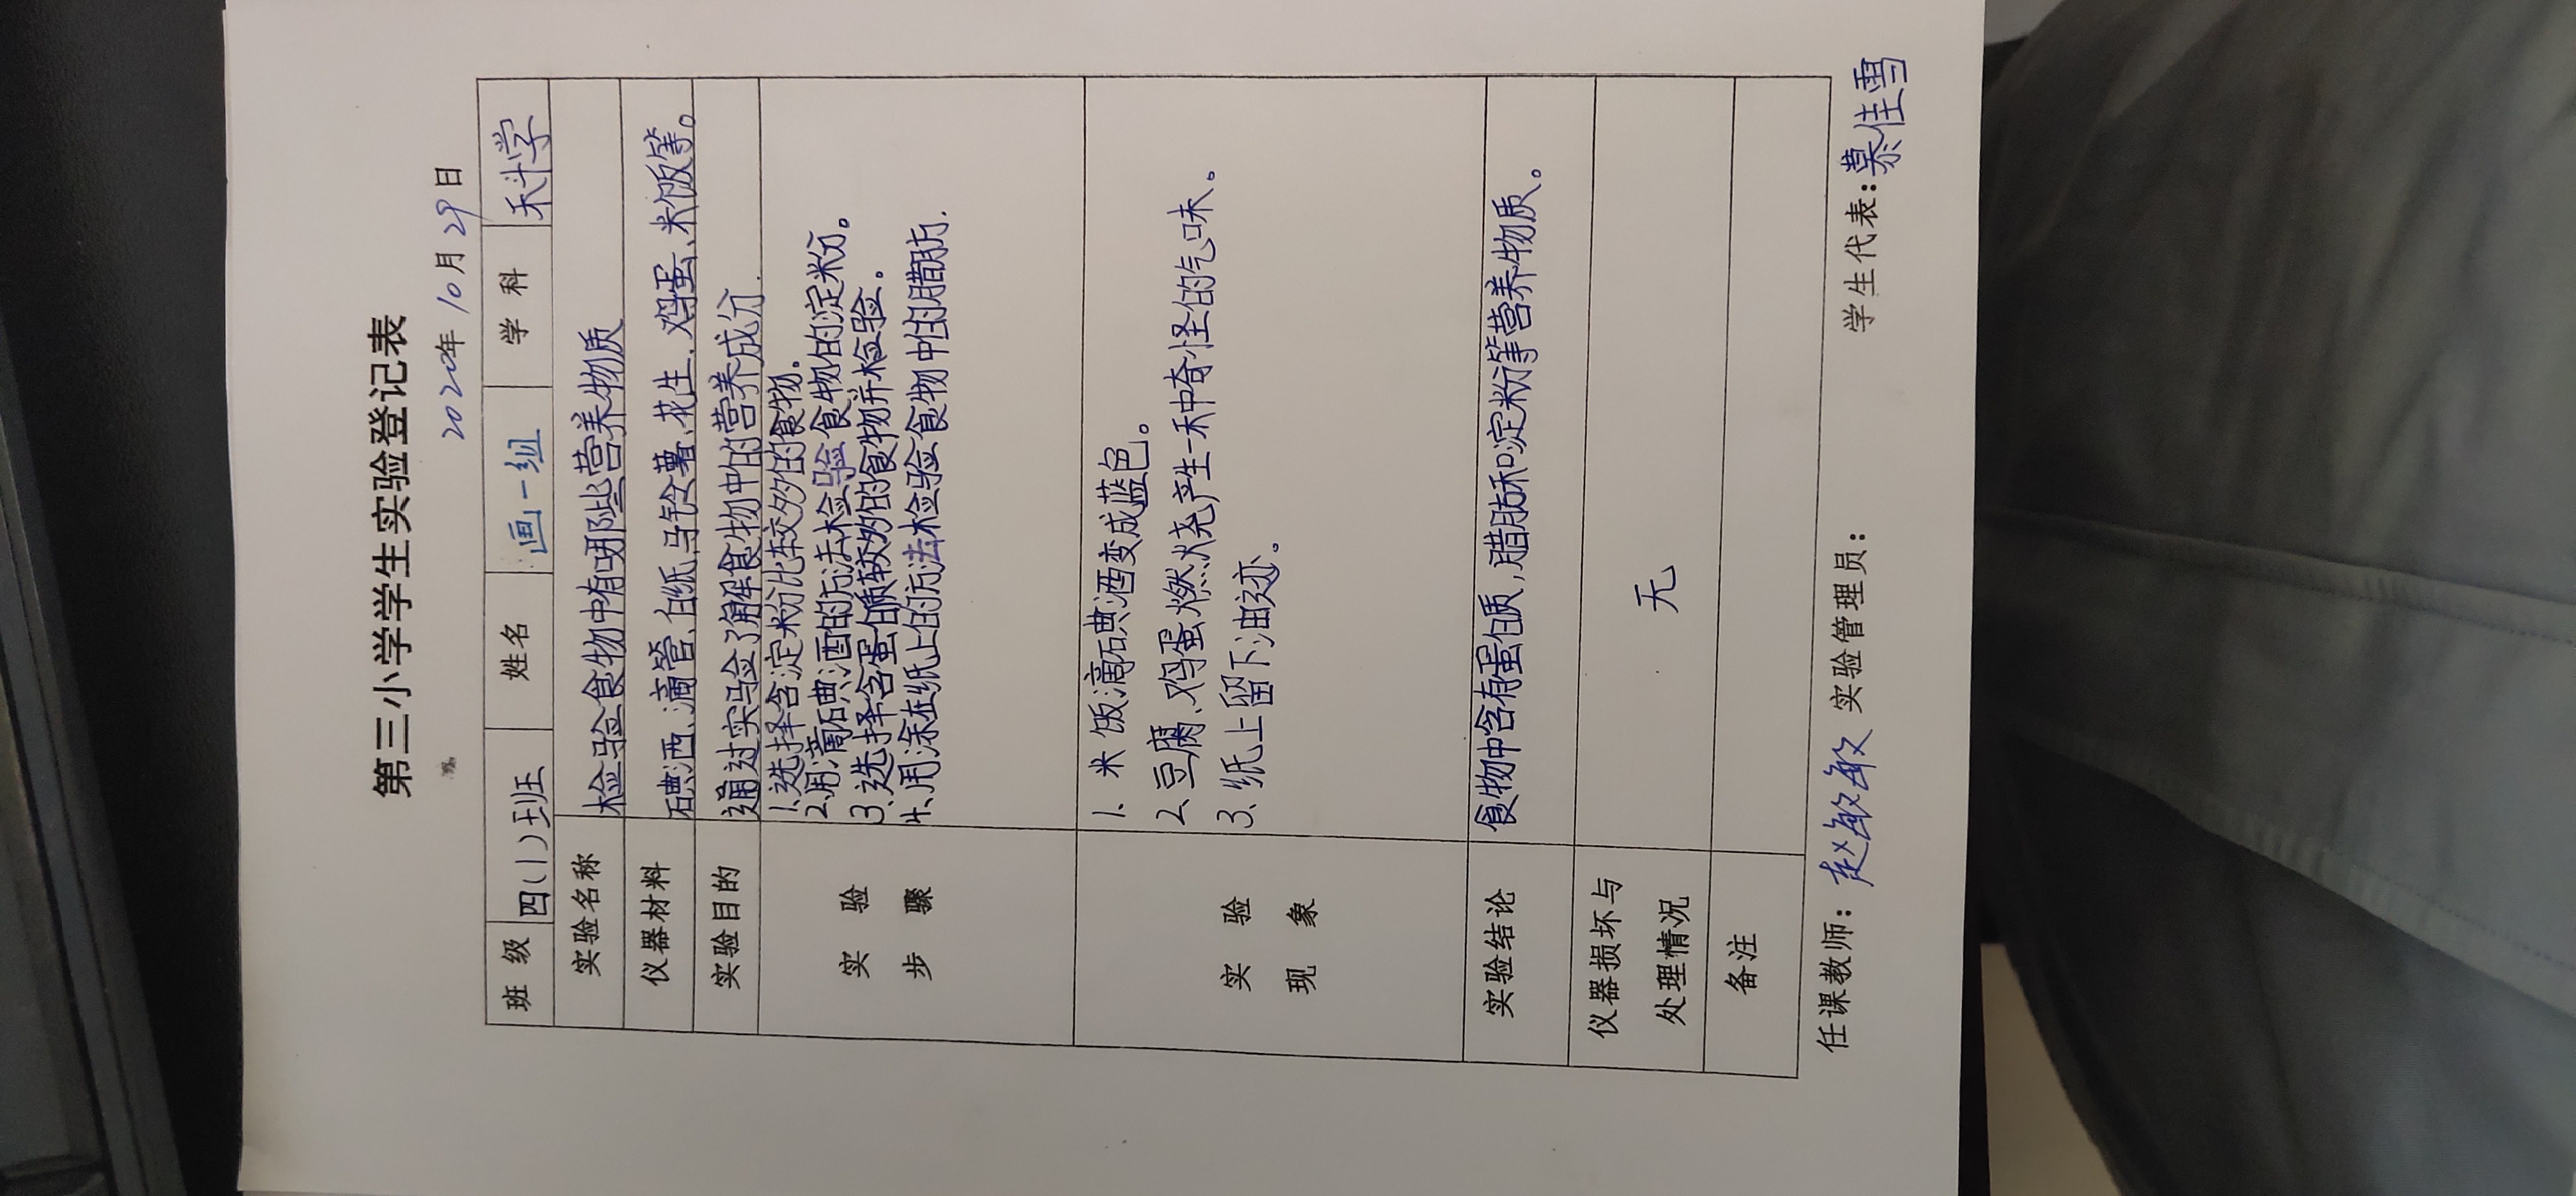 第三小学学生实验登记表
2020年10月29日
班 级 四(1)班 姓名 画一组 学 科 科学
实验名称 检验食物中有哪些营养物质
仪器材料 碘酒、滴管、白纸、马铃薯、花生、鸡蛋、米饭等。
实验目的 通过实验了解食物中的营养成分.
实 验 步 骤
1.选择含淀粉比较多的食物.
2.用滴碘酒的方法检验食物的淀粉。
3.选择含蛋白质较多的食物并检验.
4.用涂在纸上的方法检验食物中的腊肪.
实 验 现 象
1. 米饭滴碘酒变成蓝色。
2.豆腐、鸡蛋燃烧产生一种奇怪的气味。
3.纸上留下油迹。
实验结论 食物中含有蛋白质,腊肪和淀粉等营养物质。
仪器损坏与处理情况 无
备注
任课教师：赵敏敏 实验管理员： 学生代表：慕佳雪